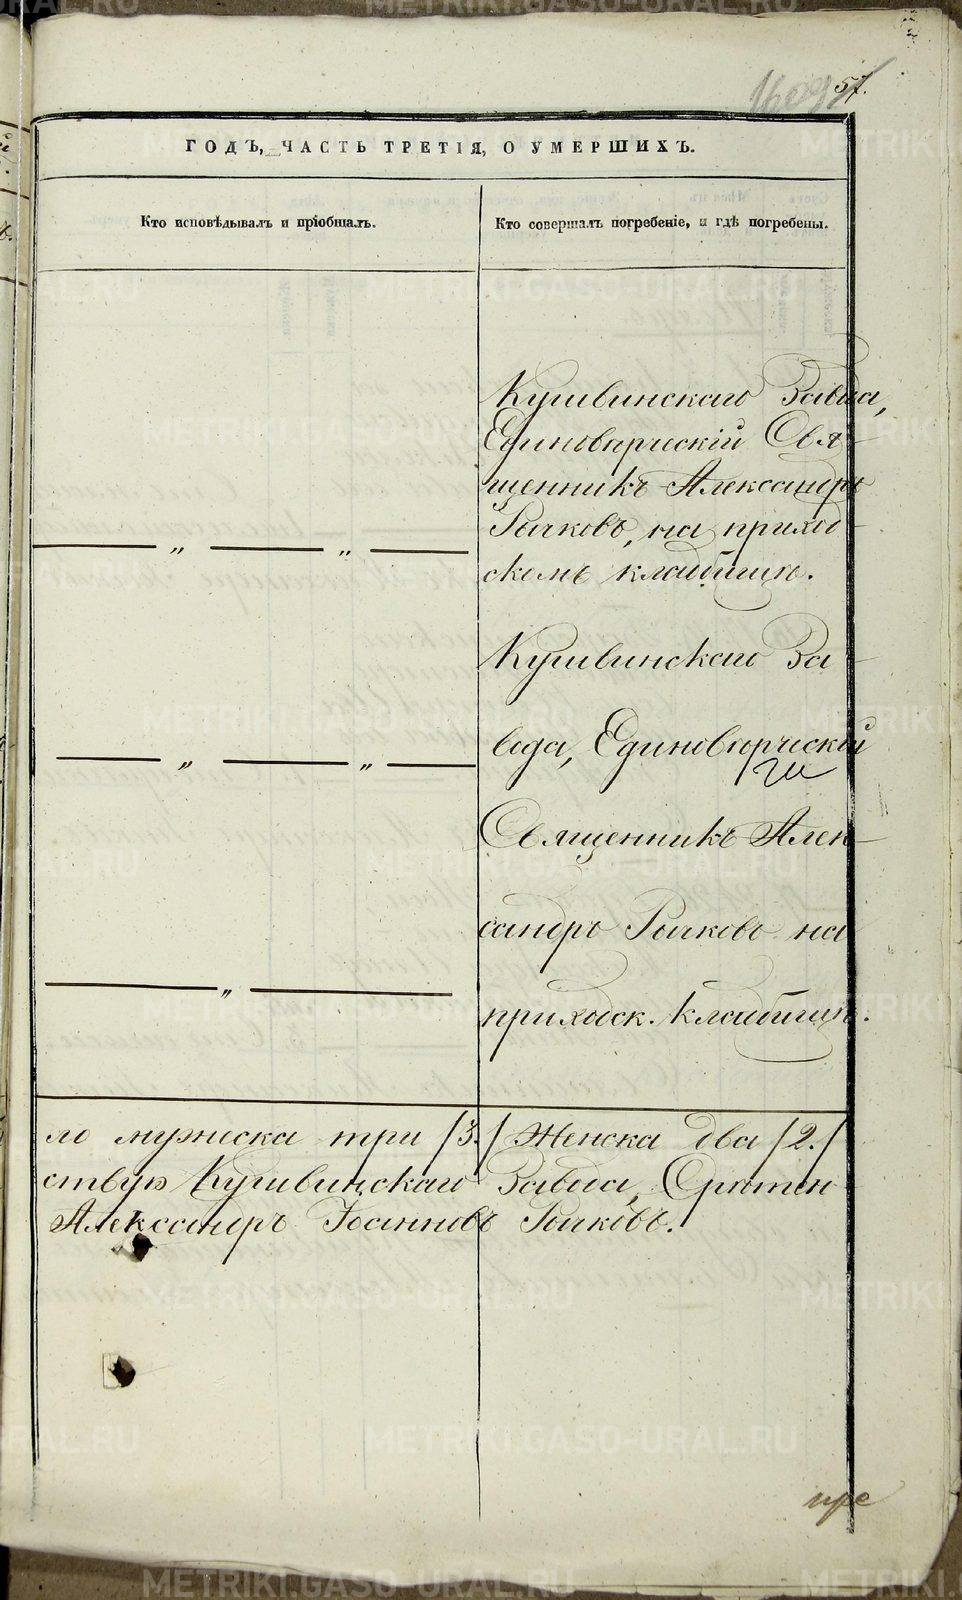 57.
ГОДЪ, ЧАСТЬ ТРЕТІЯ, О УМЕРШИХЪ.
Кто исповѣдывалъ и пріобщалъ.
Кто совершалъ погребеніе, и гдѣ погребены.
Кушвинскаго Завода,
Единовѣрческій Свя-
щенникъ Александръ
Рычковъ, на приход-
скомъ кладбищѣ.
— „ — „ —
Кушвинскаго За-
вода, Единовѣрческій
— „ — „ —
Священникъ Алек-
сандръ Рычковъ на
— „ —
приходск. кладбищѣ.
ло мужеска три /3./ Женска два /2./
ствую Кушвинскаго Завода, Срѣтен-
Александръ Іоанновъ Рычковъ.
METRIKI.GASO-URAL.RU